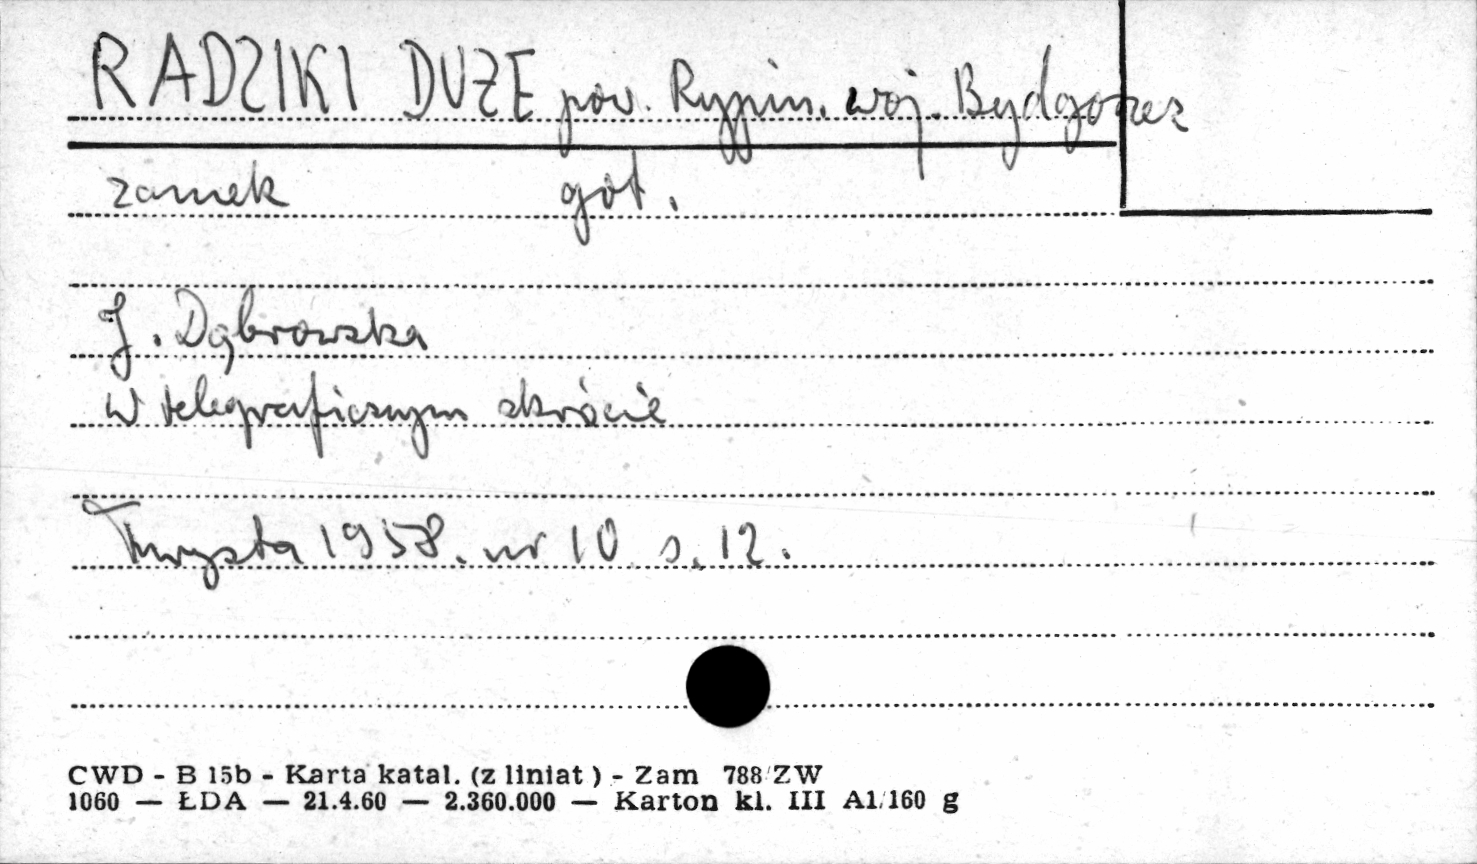 RADZIKI DUŻE pow. Rypin. woj. Bydgoszcz
zamek got.
J. Dąbrowska
w telegraficznym skrócie
Turysta 1958. nr 10 s. 12.
CWD - B 15b - Karta katal. (z liniat) - Zam 788/ZW
1060 — ŁDA — 21.4.60 — 2.360.000 — Karton kl. III A1/160 g